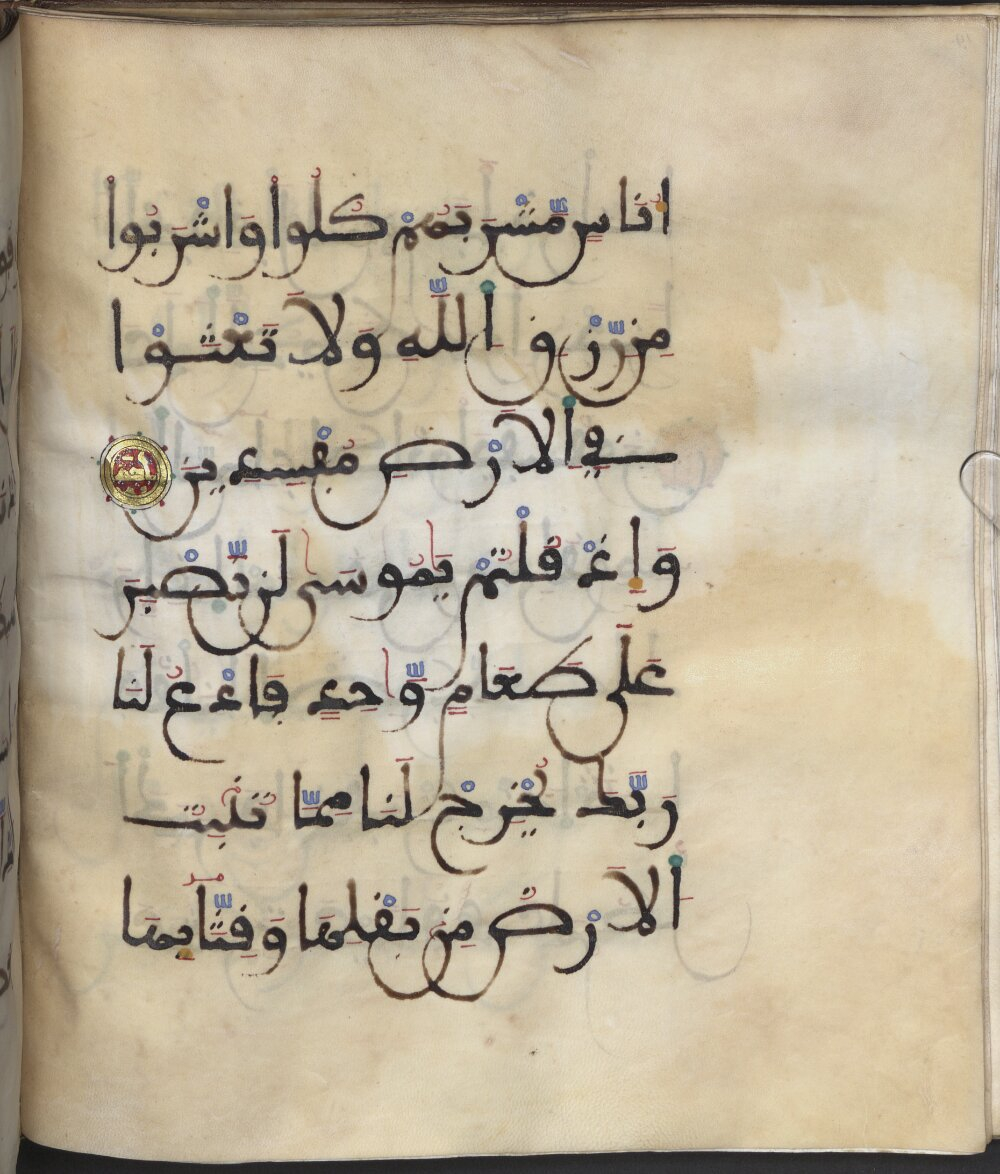 اُنَاسٍ مَّشْرَبَهُمْ كُلُوا وَاشْرَبُوا
مِن رِّزْقِ اللَّهِ وَلَا تَعْثَوْا
فِي الْأَرْضِ مُفْسِدِينَ
وَإِذْ قُلْتُمْ يَٰمُوسَىٰ لَن نَّصْبِرَ
عَلَىٰ طَعَامٍ وَٰحِدٍ فَادْعُ لَنَا
رَبَّكَ يُخْرِجْ لَنَا مِمَّا تُنۢبِتُ
الْأَرْضُ مِنۢ بَقْلِهَا وَقِثَّائِهَا